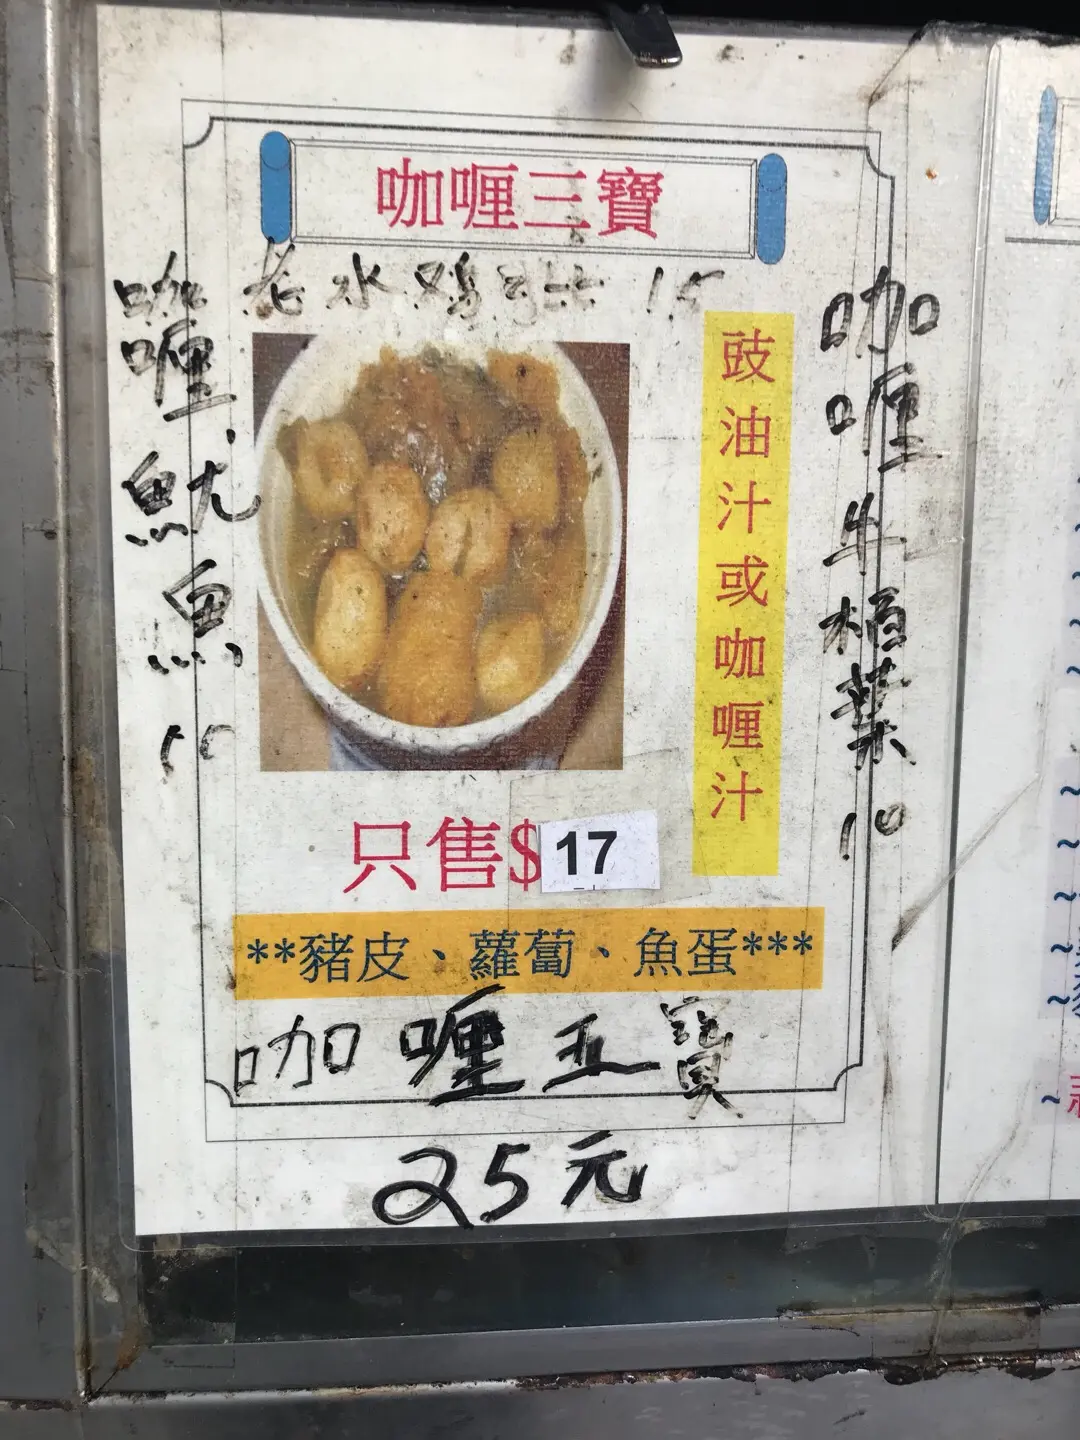 咖喱三寶
老水鸡 15
咖喱魷魚
15
豉油汁或咖喱汁
咖喱牛栢葉10
只售$17
**豬皮、蘿蔔、魚蛋***
咖喱五寶
25元